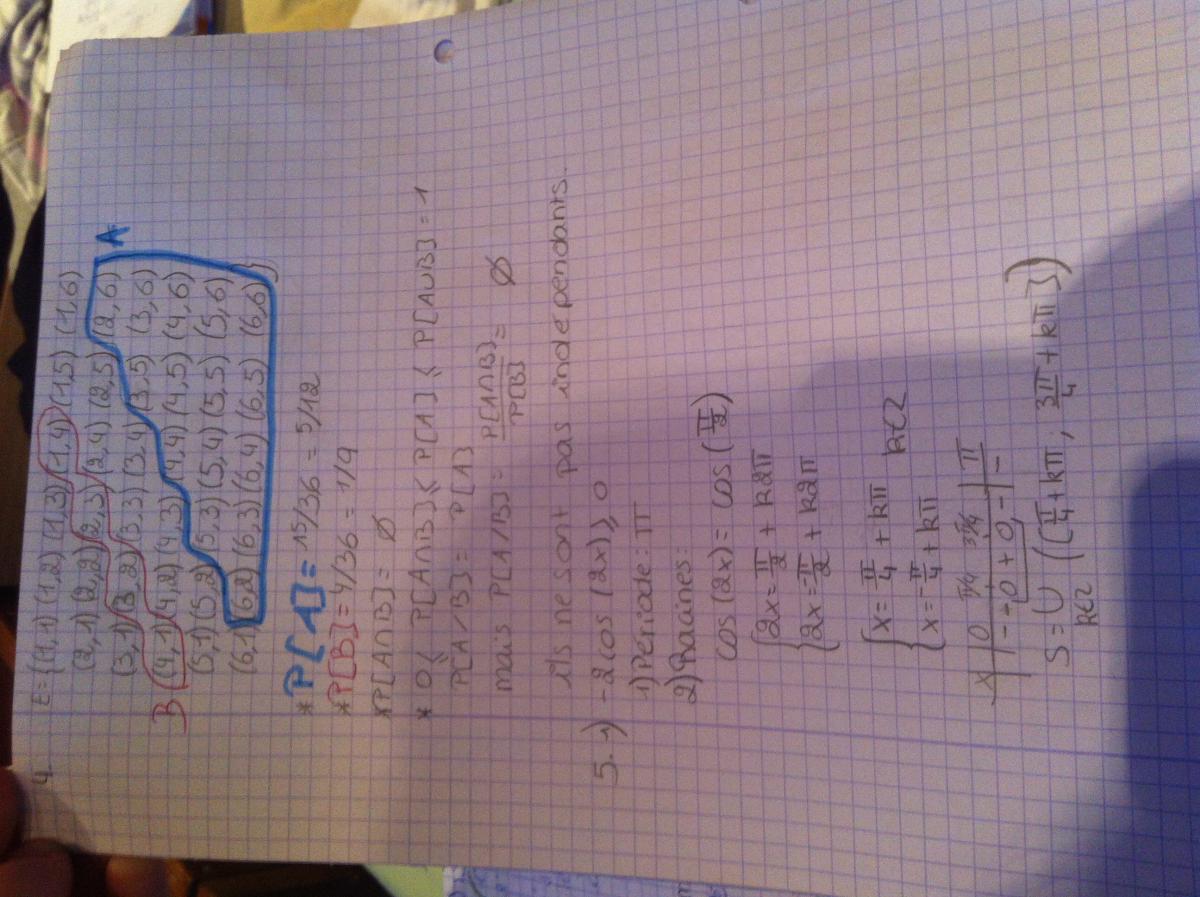 4. E={(1,1) (1,2) (1,3) (1,4) (1,5) (1,6)
(2,1) (2,2) (2,3) (2,4) (2,5) (2,6)
A
(3,1) (3,2) (3,3) (3,4) (3,5) (3,6)
B (4,1) (4,2) (4,3) (4,4) (4,5) (4,6)
(5,1) (5,2) (5,3) (5,4) (5,5) (5,6)
(6,1) (6,2) (6,3) (6,4) (6,5) (6,6) }
* P[A] = 15/36 = 5/12
* P[B] = 4/36 = 1/9
* P[A∩B] = ∅
* 0 ≤ P[A∩B] ≤ P[A] ≤ P[A∪B] = 1
P[A/B] = P[A]
mais P[A/B] = P[A∩B]/P[B] = ∅
ils ne sont pas independants.
5. 1) -2cos (2x) ≥ 0
1) Periode: π
2) Racines:
cos (2x) = cos (π/2)
{ 2x = π/2 + k2π
{ 2x = -π/2 + k2π
{ x = π/4 + kπ
{ x = -π/4 + kπ k∈Z
x | 0 π/4 3π/4 | π
| - - 0 + 0 - | -
S = ∪ ([π/4 + kπ ; 3π/4 + kπ])
k∈Z